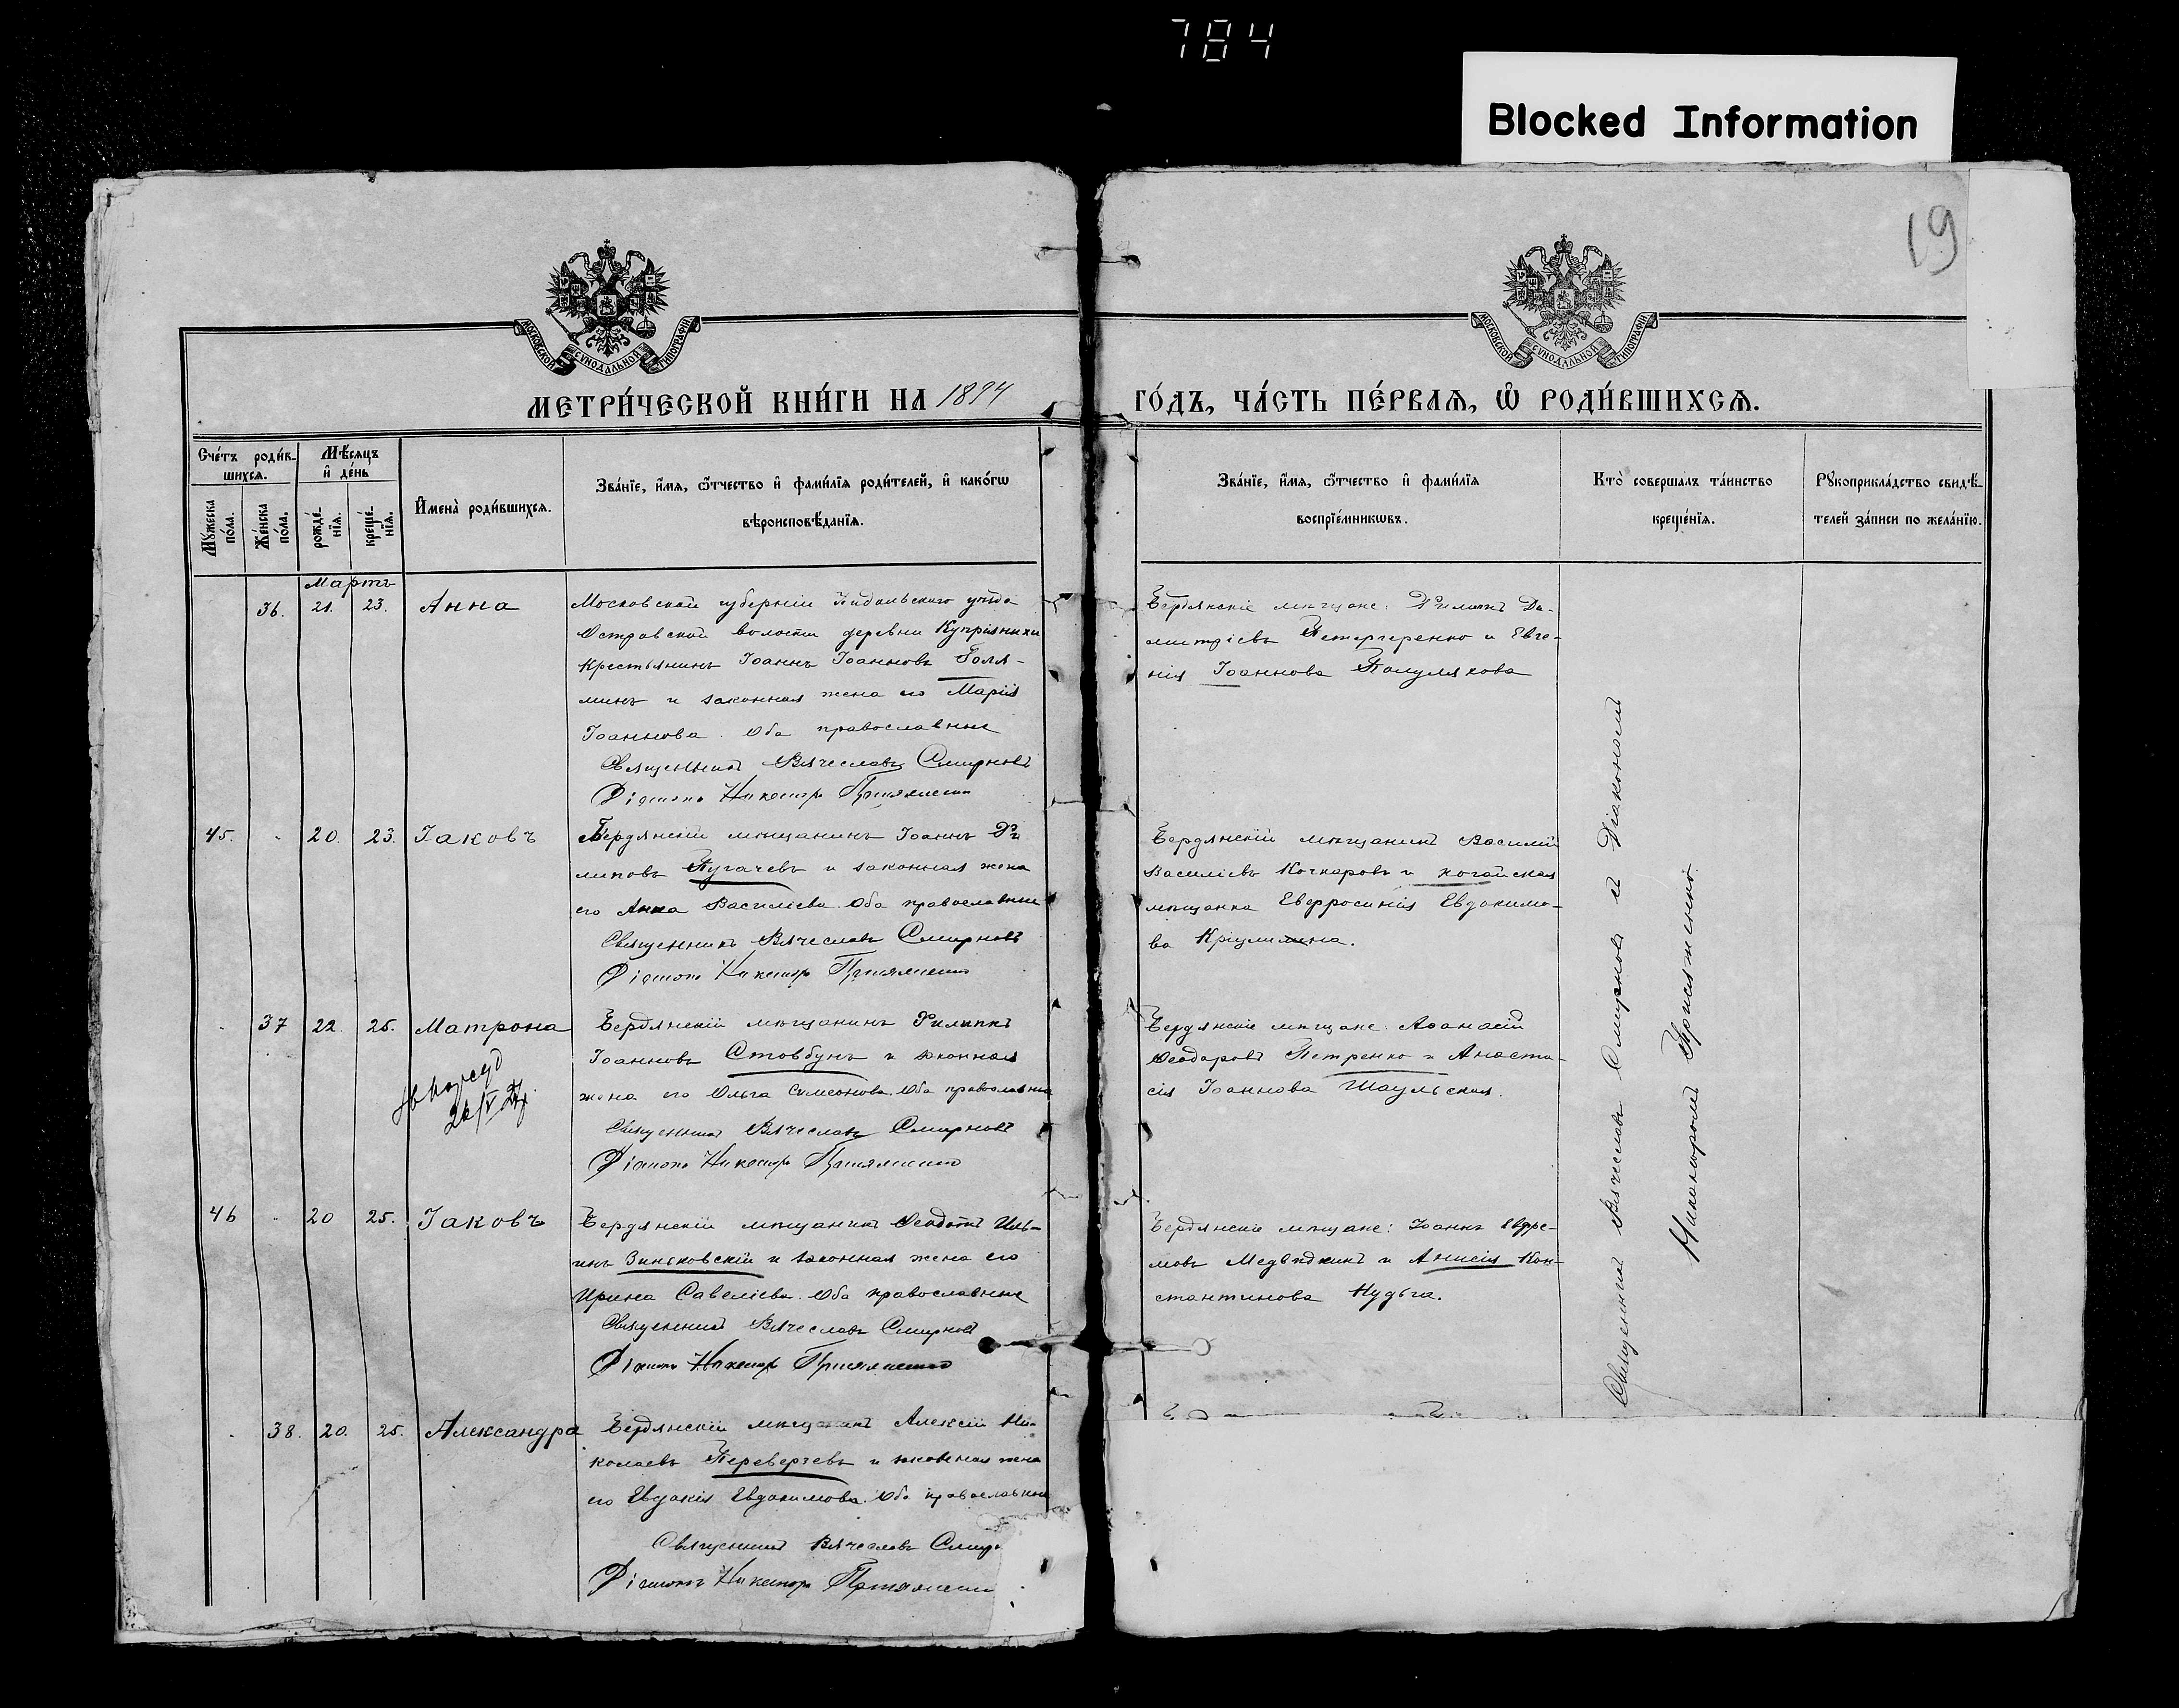 784
Blocked Information
19
МОСКОВСКОЙ СУНОДАЛЬНОЙ ТИПОГРАФІИ
МОСКОВСКОЙ СУНОДАЛЬНОЙ ТИПОГРАФІИ
МЕТРИ́ЧЕСКОЙ КНИ́ГИ НА 1894
ГО́ДЪ, ЧА́СТЬ ПЕ́РВАѦ, Ѡ РОДИ́ВШИХСѦ.
Сче́тъ роди́в-
шихсѧ.
Мꙋ́жеска по́ла.
Же́нска по́ла.
Мѣ́сѧцъ
и҆ де́нь
рожде́-
нїѧ.
креще́-
нїѧ.
И҆мена̀ роди́вшихсѧ.
Зва́нїе, и҆́мѧ, ѻ҆́тчество и҆ фами́лїѧ роди́телей, и҆ како́гѡ
вѣроисповѣ́данїѧ.
Зва́нїе, и҆́мѧ, ѻ҆́тчество и҆ фами́лїѧ
воспрїе́мникѡвъ.
Кто̀ соверша́лъ та́инство
креще́нїѧ.
Рꙋкоприкла́дство свидѣ́-
телей за́писи по жела́нїю.
Мартъ
36. 21. 23. Анна
Московской губерніи Подольскаго уѣзда
Островской волости деревни Купріянихи
крестьянинъ Іоаннъ Іоанновъ Голя-
минъ и законная жена его Марія
Іоаннова. Оба православные
Священникъ Вячеславъ Смирновъ
Діаконъ Никаноръ Присяженко
Бердянскіе мѣщане: Филиппъ Ди-
митріевъ и Евге-
нія Іоаннова Полулякова
45. 20. 23. Іаковъ
Бердянскій мѣщанинъ Іоаннъ Фи-
липовъ Пугачевъ и законная жена
его Анна Василіева. Оба православные
Священникъ Вячеславъ Смирновъ
Діаконъ Никаноръ Присяженко
Бердянскій мѣщанинъ Василій
Василіевъ Кочкаровъ и ногайская
мѣщанка Евфросинія Евдокимо-
ва
37 22. 25. Матрона
Бердянскій мѣщанинъ Филиппъ
Іоанновъ Стовбунъ и законная
жена его Ольга Симеонова. Оба православные
Священникъ Вячеславъ Смирновъ
Діаконъ Никаноръ Присяженко
Бердянскіе мѣщане: Аѳанасій
Ѳеодоровъ Петренко и Анаста-
сія Іоаннова Шаульская.
46 20 25. Іаковъ
Бердянскій мѣщанинъ Ѳеодотъ Иль-
инъ Зиньковскій и законная жена его
Ирина Савеліева. Оба православные
Священникъ Вячеславъ Смирновъ
Діаконъ Никаноръ Присяженко
Бердянскіе мѣщане: Іоаннъ Ефре-
мовъ Медвѣдкинъ и Анисія Кон-
стантинова Нудьга.
38. 20. 25. Александра
Бердянскій мѣщанинъ Алексій Ни-
колаевъ Переверзевъ и законная жена
его Евдокія Евдокимова. Оба православные
Священникъ Вячеславъ Смир
Діаконъ Никаноръ Присяженко
Священникъ Вячеславъ Смирновъ съ Діакономъ
Никаноромъ Присяженко.